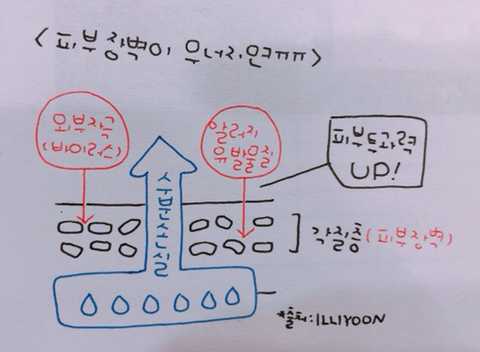 <피부장벽이 무너지면ㅠㅠ>
외부자극
(바이러스)
알러지
유발물질
피부투과력
UP!
수분손실
각질층(피부장벽)
*출처:ILLIYOON